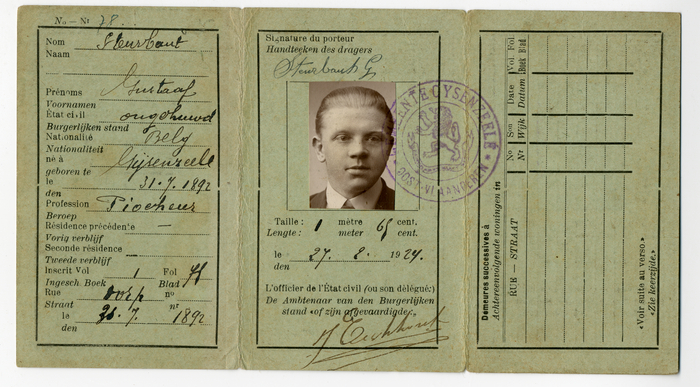 No – Nr 78.
Nom Steurbaut
Naam
Prénoms Gustaaf
Voornamen
État civil ongehuwd
Burgerlijken stand
Nationalité Belg
Nationaliteit
né à Gijsenzeele
geboren te
le 31.7.1892
den
Profession Piocheur
Beroep
Résidence précédente —
Vorig verblijf
Seconde résidence —
Tweede verblijf
Inscrit Vol 1 Fol
Ingesch. Boek Blad
Rue Dorp no
Straat nr
le 7. 1892
den
Signature du porteur
Handteeken des dragers
Steurbaut G
GEMEENTE GYSENZEELE
OOST-VLAANDEREN
Taille : 1 mètre 65 cent.
Lengte : meter cent.
le 27. 8. 1924.
den
L'officier de l'État civil (ou son délégué:)
De Ambtenaar van den Burgerlijken
stand «of zijn afgevaardigde»
Demeures successives à
Achtereenvolgende woningen in
RUE — STRAAT
No Son Date Vol. Fol.
Nr Wijk Datum Boek Blad
«Voir suite au verso»
«Zie keerzijde.»